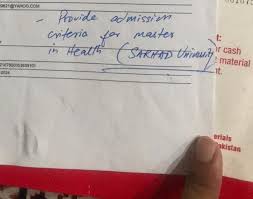 9621@YAHOO.COM
- Provide admission
criteria for master
in Health (SARHAD University)
t:
r cash
material
nt.
2024
erials
akistan